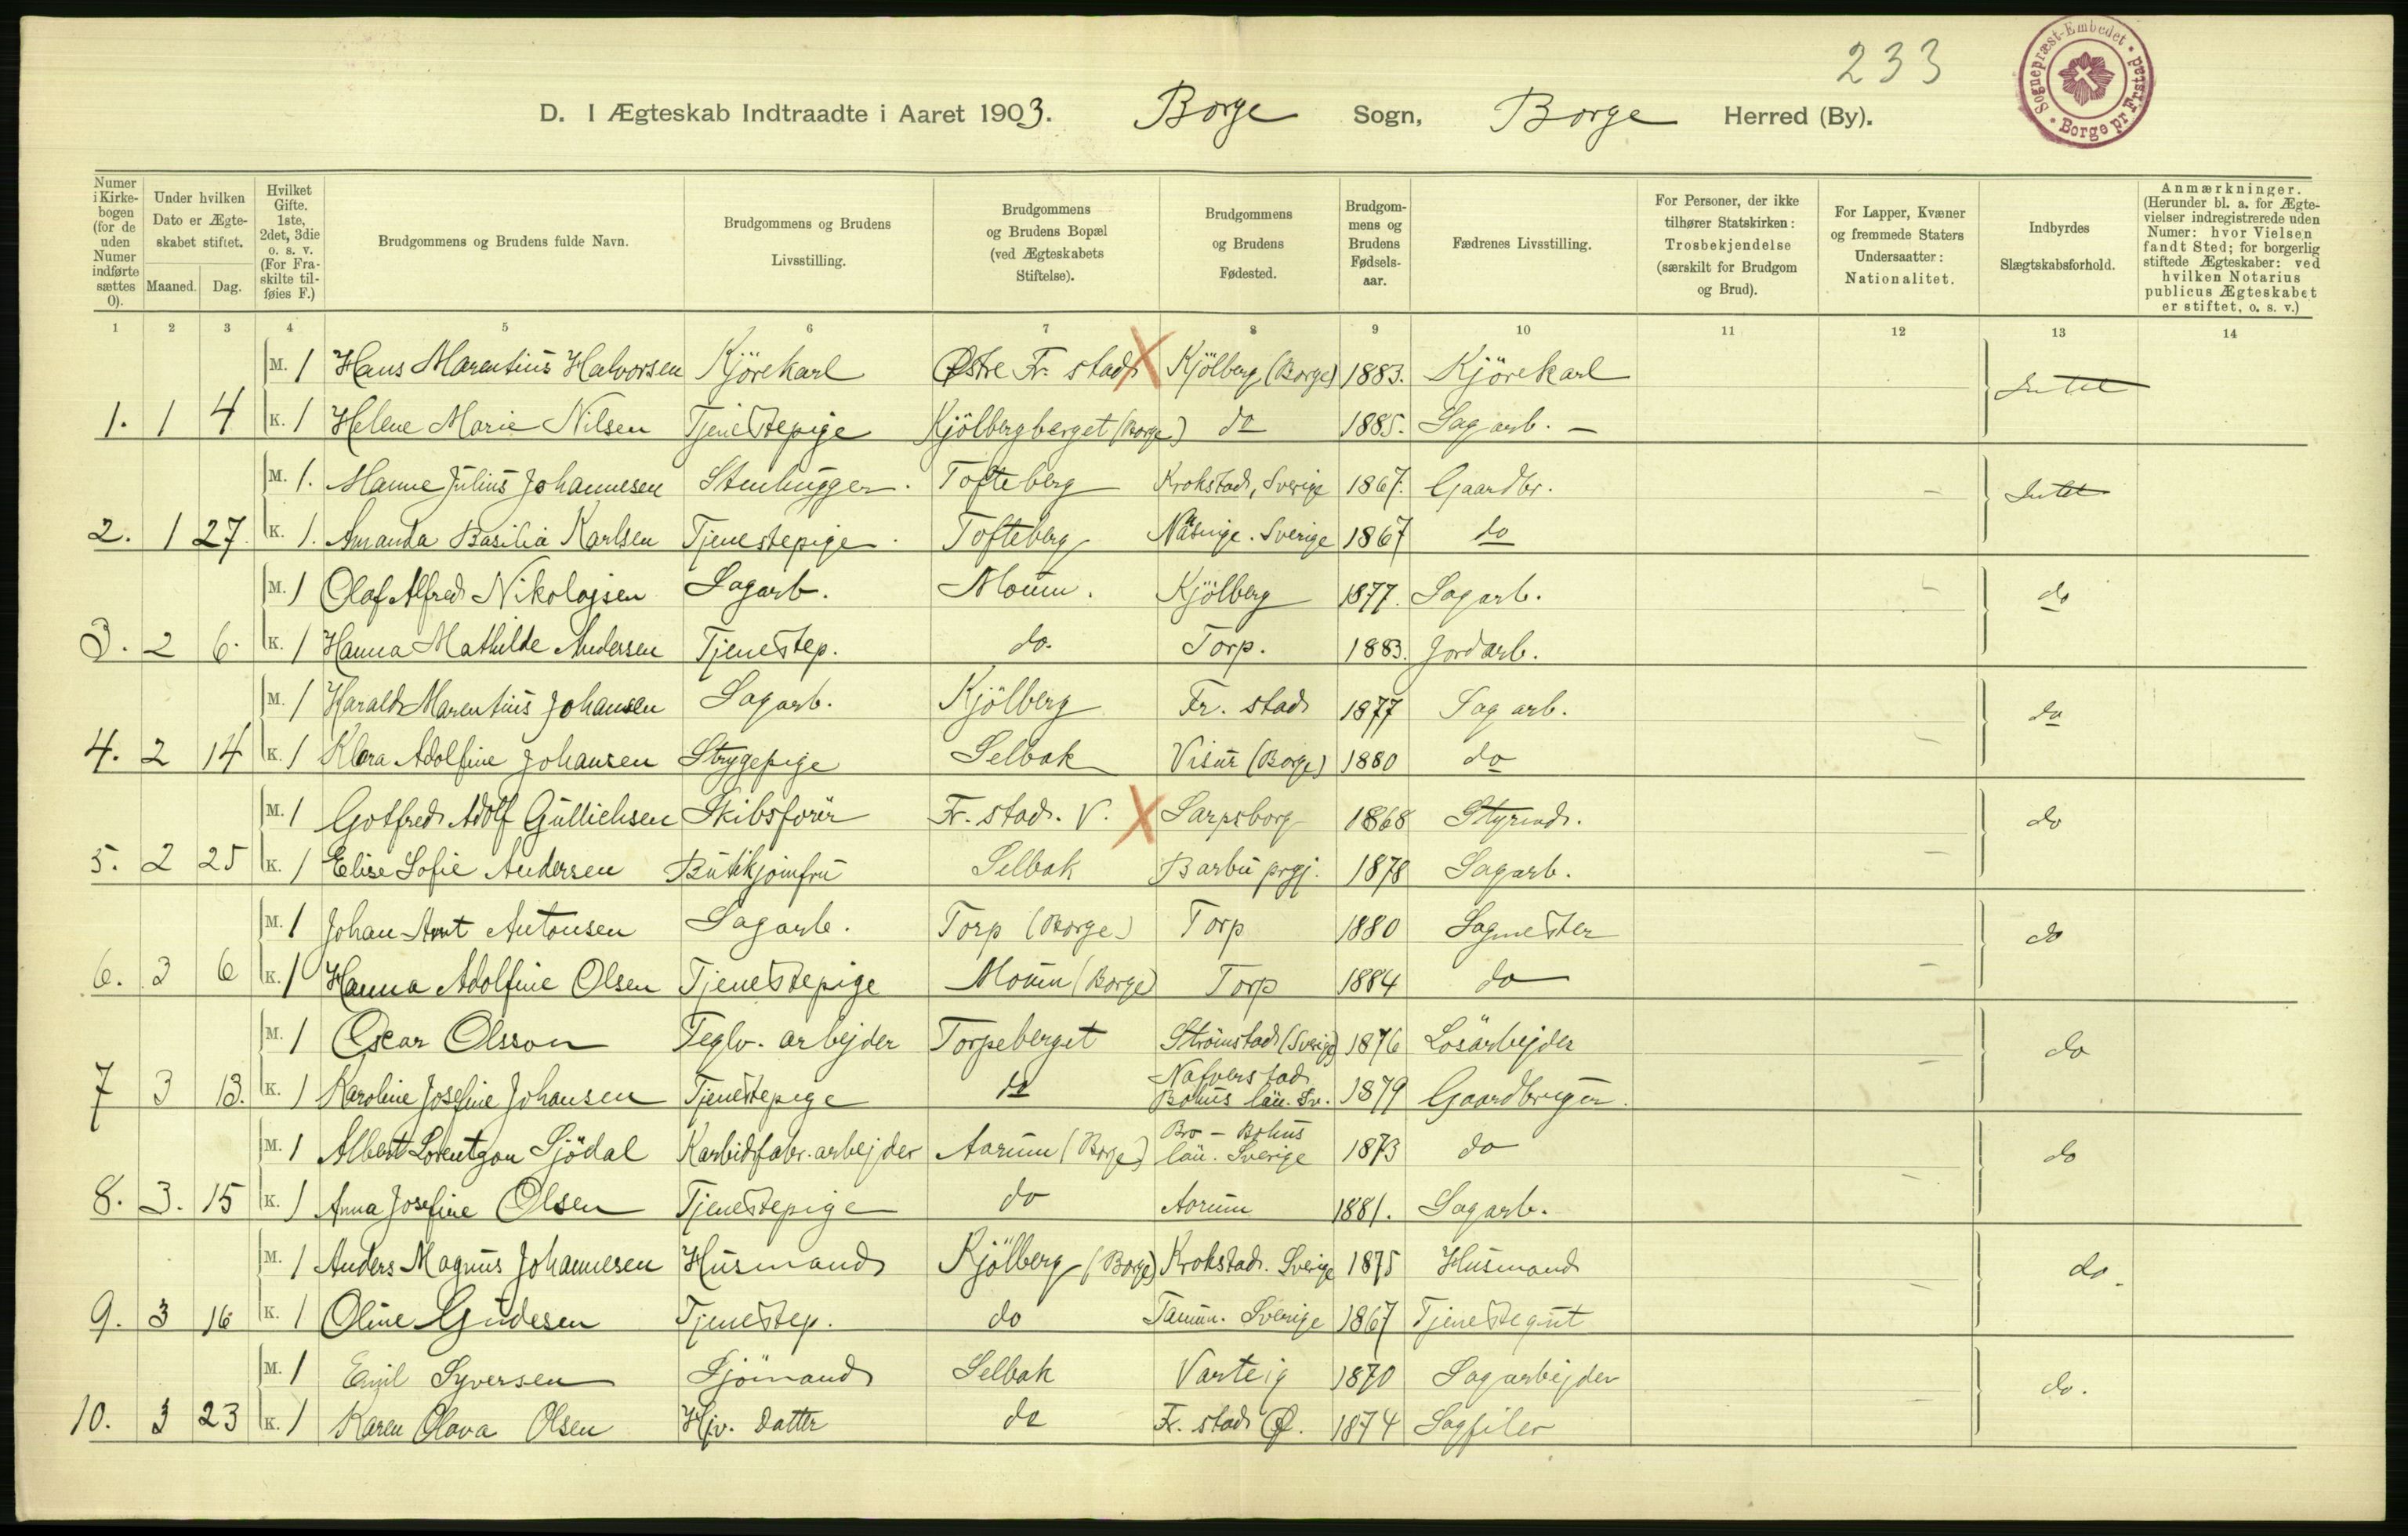 233
Sognepræst-Embedet • Borge pr Frstad •
D. I Ægteskab Indtraadte i Aaret 1903. Borge Sogn, Borge Herred (By).
Numer i Kirkebogen (for de uden Numer indførte sættes 0).
Under hvilken Dato er Ægteskabet stiftet.
Maaned. Dag.
Hvilket Gifte. 1ste, 2det, 3die o. s. v. (For Fraskilte tilføies F.)
Brudgommens og Brudens fulde Navn.
Brudgommens og Brudens Livsstilling.
Brudgommens og Brudens Bopæl (ved Ægteskabets Stiftelse).
Brudgommens og Brudens Fødested.
Brudgommens og Brudens Fødselsaar.
Fædrenes Livsstilling.
For Personer, der ikke tilhører Statskirken: Trosbekjendelse (særskilt for Brudgom og Brud).
For Lapper, Kvæner og fremmede Staters Undersaatter: Nationalitet.
Indbyrdes Slægtskabsforhold.
Anmærkninger. (Herunder bl. a. for Ægtevielser indregistrerede uden Numer: hvor Vielsen fandt Sted; for borgerlig stiftede Ægteskaber: ved hvilken Notarius publicus Ægteskabet er stiftet, o. s. v.)
1 2 3 4 5 6 7 8 9 10 11 12 13 14
M. 1 Hans Marentius Halvorsen Kjörekarl Østre Fr. stad X Kjölberg (Borge) 1883. Kjörekarl Intet
1. 1 4 K. 1 Helene Marie Nilsen Tjenestepige Kjölbergberget (Borge) do 1885. Sagarb. —
M. 1. Manne Julius Johannesen Stenhugger. Tofteberg Krokstad, Sverige 1867. Gaardbr. — Intet
2. 1 27. K. 1. Amanda Basilia Karlsen Tjenestepige. Tofteberg Näsinge. Sverige 1867 do
M. 1 Olaf Alfred Nikolajsen Sagarb. Moum. Kjölberg 1877. Sagarb. — do
3. 2 6. K. 1 Hanna Mathilde Andersen Tjenestep. do. Torp. 1883. Jordarb.
M. 1 Harald Marentius Johansen Sagarb. Kjölberg Fr. stad 1877 Sagarb. do
4. 2 14 K. 1 Klara Adolfine Johansen Strygepige Selbak Visur (Borge) 1880 do —
M. 1 Gotfred Adolf Gullichsen Skibsförer Fr. stad. V. X Sarpsborg 1868 Styrmd. do
5. 2 25 K. 1 Elise Sofie Andersen Butikjomfru Selbak Barbu prgj. 1878 Sagarb. —
M. 1 Johan Arnt Antonsen Sagarb. Torp (Borge) Torp 1880 Sagmester do
6. 3 6 K. 1 Hanna Adolfine Olsen Tjenestepige Moum (Borge) Torp 1884 do —
M. 1 Oscar Olsson Teglv. arbejder Torpeberget Strömstad (Sverige) 1876 Lösarbejder do
7 3 13. K. 1 Karoline Josefine Johansen Tjenestepige do Nafverstad Bohus län. Sv. 1879 Gaardbruger. —
M. 1 Albert Lorentzon Sjödal Karbidfabr. arbejder Aarum (Borge) Bro - Bohus län. Sverige 1873 do do
8. 3. 15 K. 1 Anna Josefine Olsen Tjenestepige do Aorum 1881. Sagarb. —
M. 1 Anders Magnus Johannesen Husmand Kjölberg (Borge) Krokstad. Sverige 1875 Husmand do.
9. 3 16 K. 1 Oline Gudesen Tjenestep. do Tanum. Sverige 1867 Tjenestegut —
M. 1 Emil Syversen Sjömand Selbak Varteig 1870 Sagarbejder do.
10. 3 23 K. 1 Karen Olava Olsen Hjv. datter do Fr. stad Ø. 1874 Sagfiler —